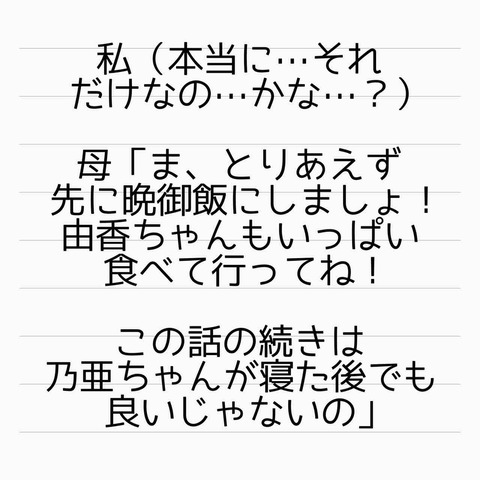 私（本当に…それ
だけなの…かな…？）
母「ま、とりあえず
先に晩御飯にしましょ！
由香ちゃんもいっぱい
食べて行ってね！
この話の続きは
乃亜ちゃんが寝た後でも
良いじゃないの」